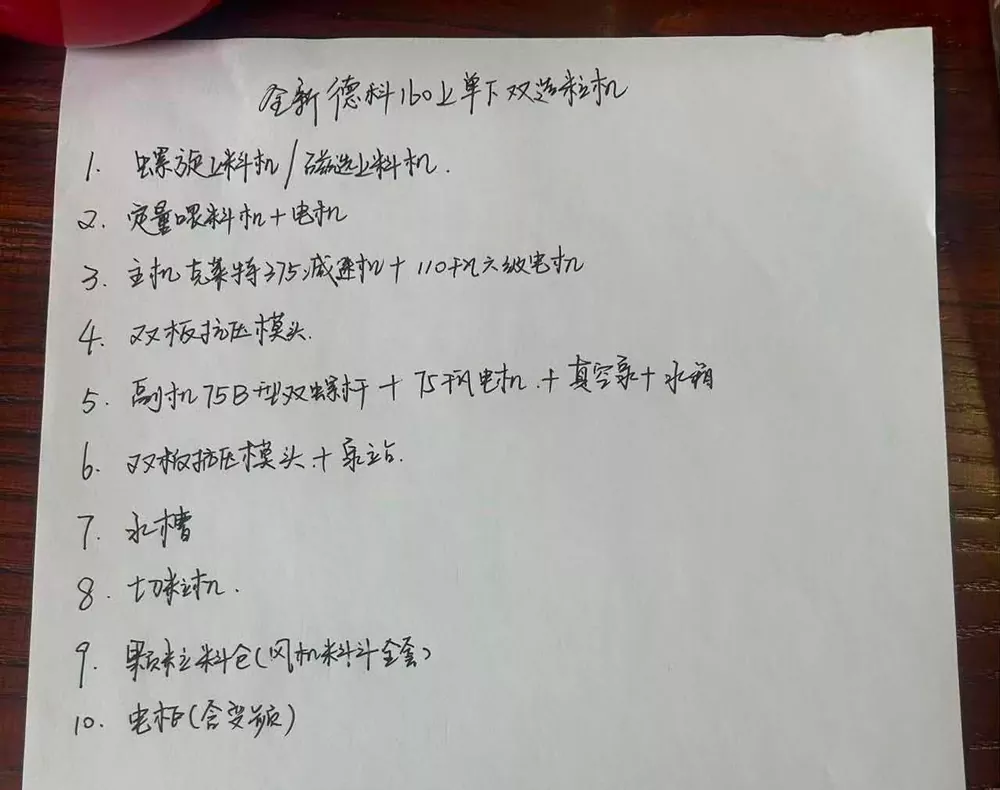 全新德科160上单下双造粒机
1. 螺旋上料机/磁选上料机.
2. 定量喂料机+电机
3. 主机克莱特375减速机+110千瓦六级电机
4. 双板抗压模头.
5. 副机75B型双螺杆+75千瓦电机.+真空泵+水箱
6. 双板抗压模头.+泵站.
7. 水槽
8. 切粒机.
9. 颗粒料仓(风机料斗全套)
10. 电柜(含变频)